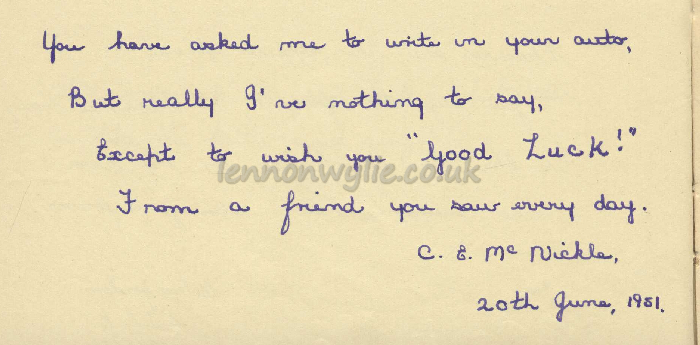 You have asked me to write in your auto,
But really I've nothing to say,
Except to wish you "Good Luck!"
lennonwylie.co.uk
From a friend you saw every day.
C. E. Mc Nickle,
20th June, 1951.